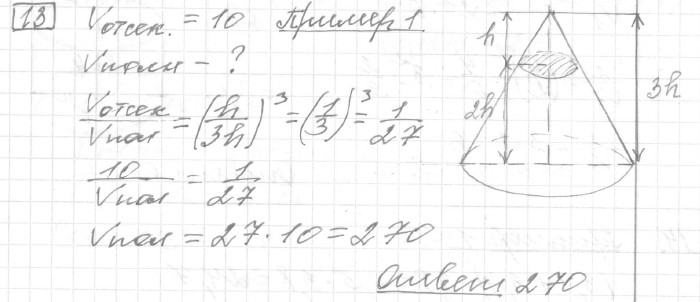 13 Vотсек. = 10 Пример 1
Vполн - ?
Vотсек/Vпол = (h/3h)^3 = (1/3)^3 = 1/27
10/Vпол = 1/27
Vпол = 27 · 10 = 270
Ответ 270
h
2h
3h